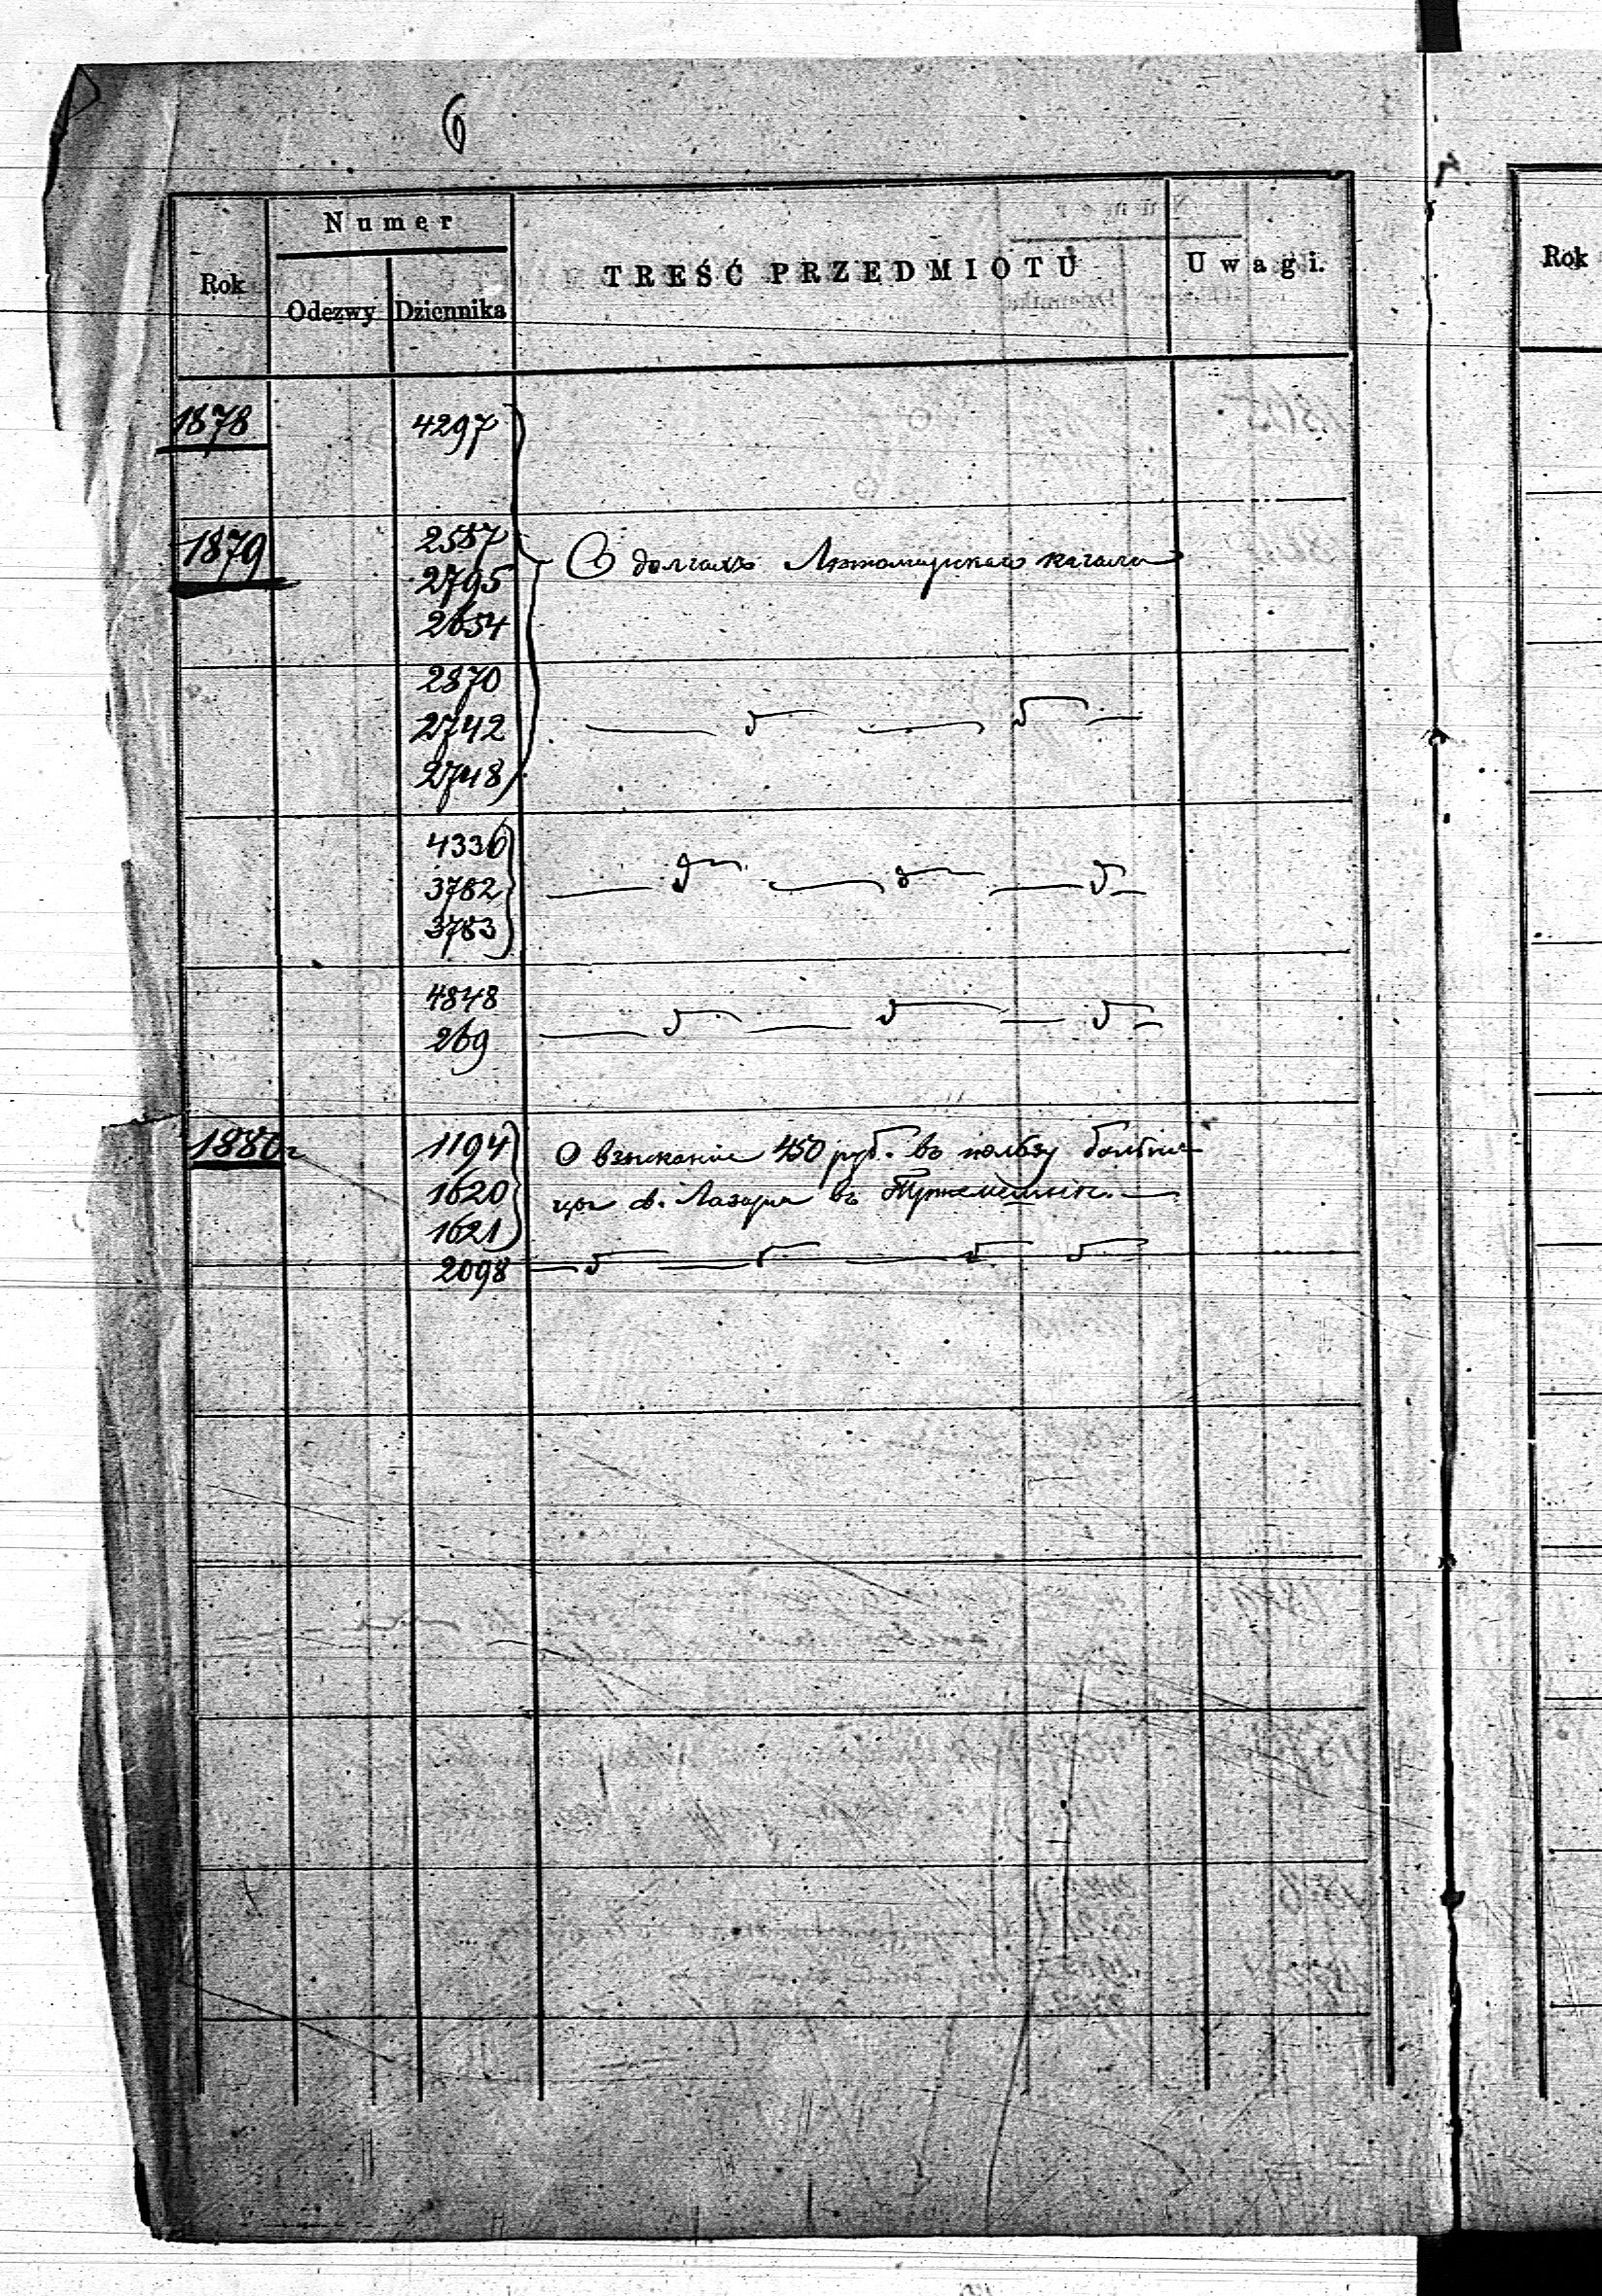 6
Numer
Rok Odezwy Dziennika TREŚĆ PRZEDMIOTU Uwagi.
Rok
1878 4297
1879 2557 О долгахъ Лютомирскаго кагала
2795
2654
2870
2742
2748
4336
3782
3783
4848
269
1880 г 1194 О взысканіи 450 руб. въ пользу больни-
1620 цы св. Лазаря въ
1621
2098